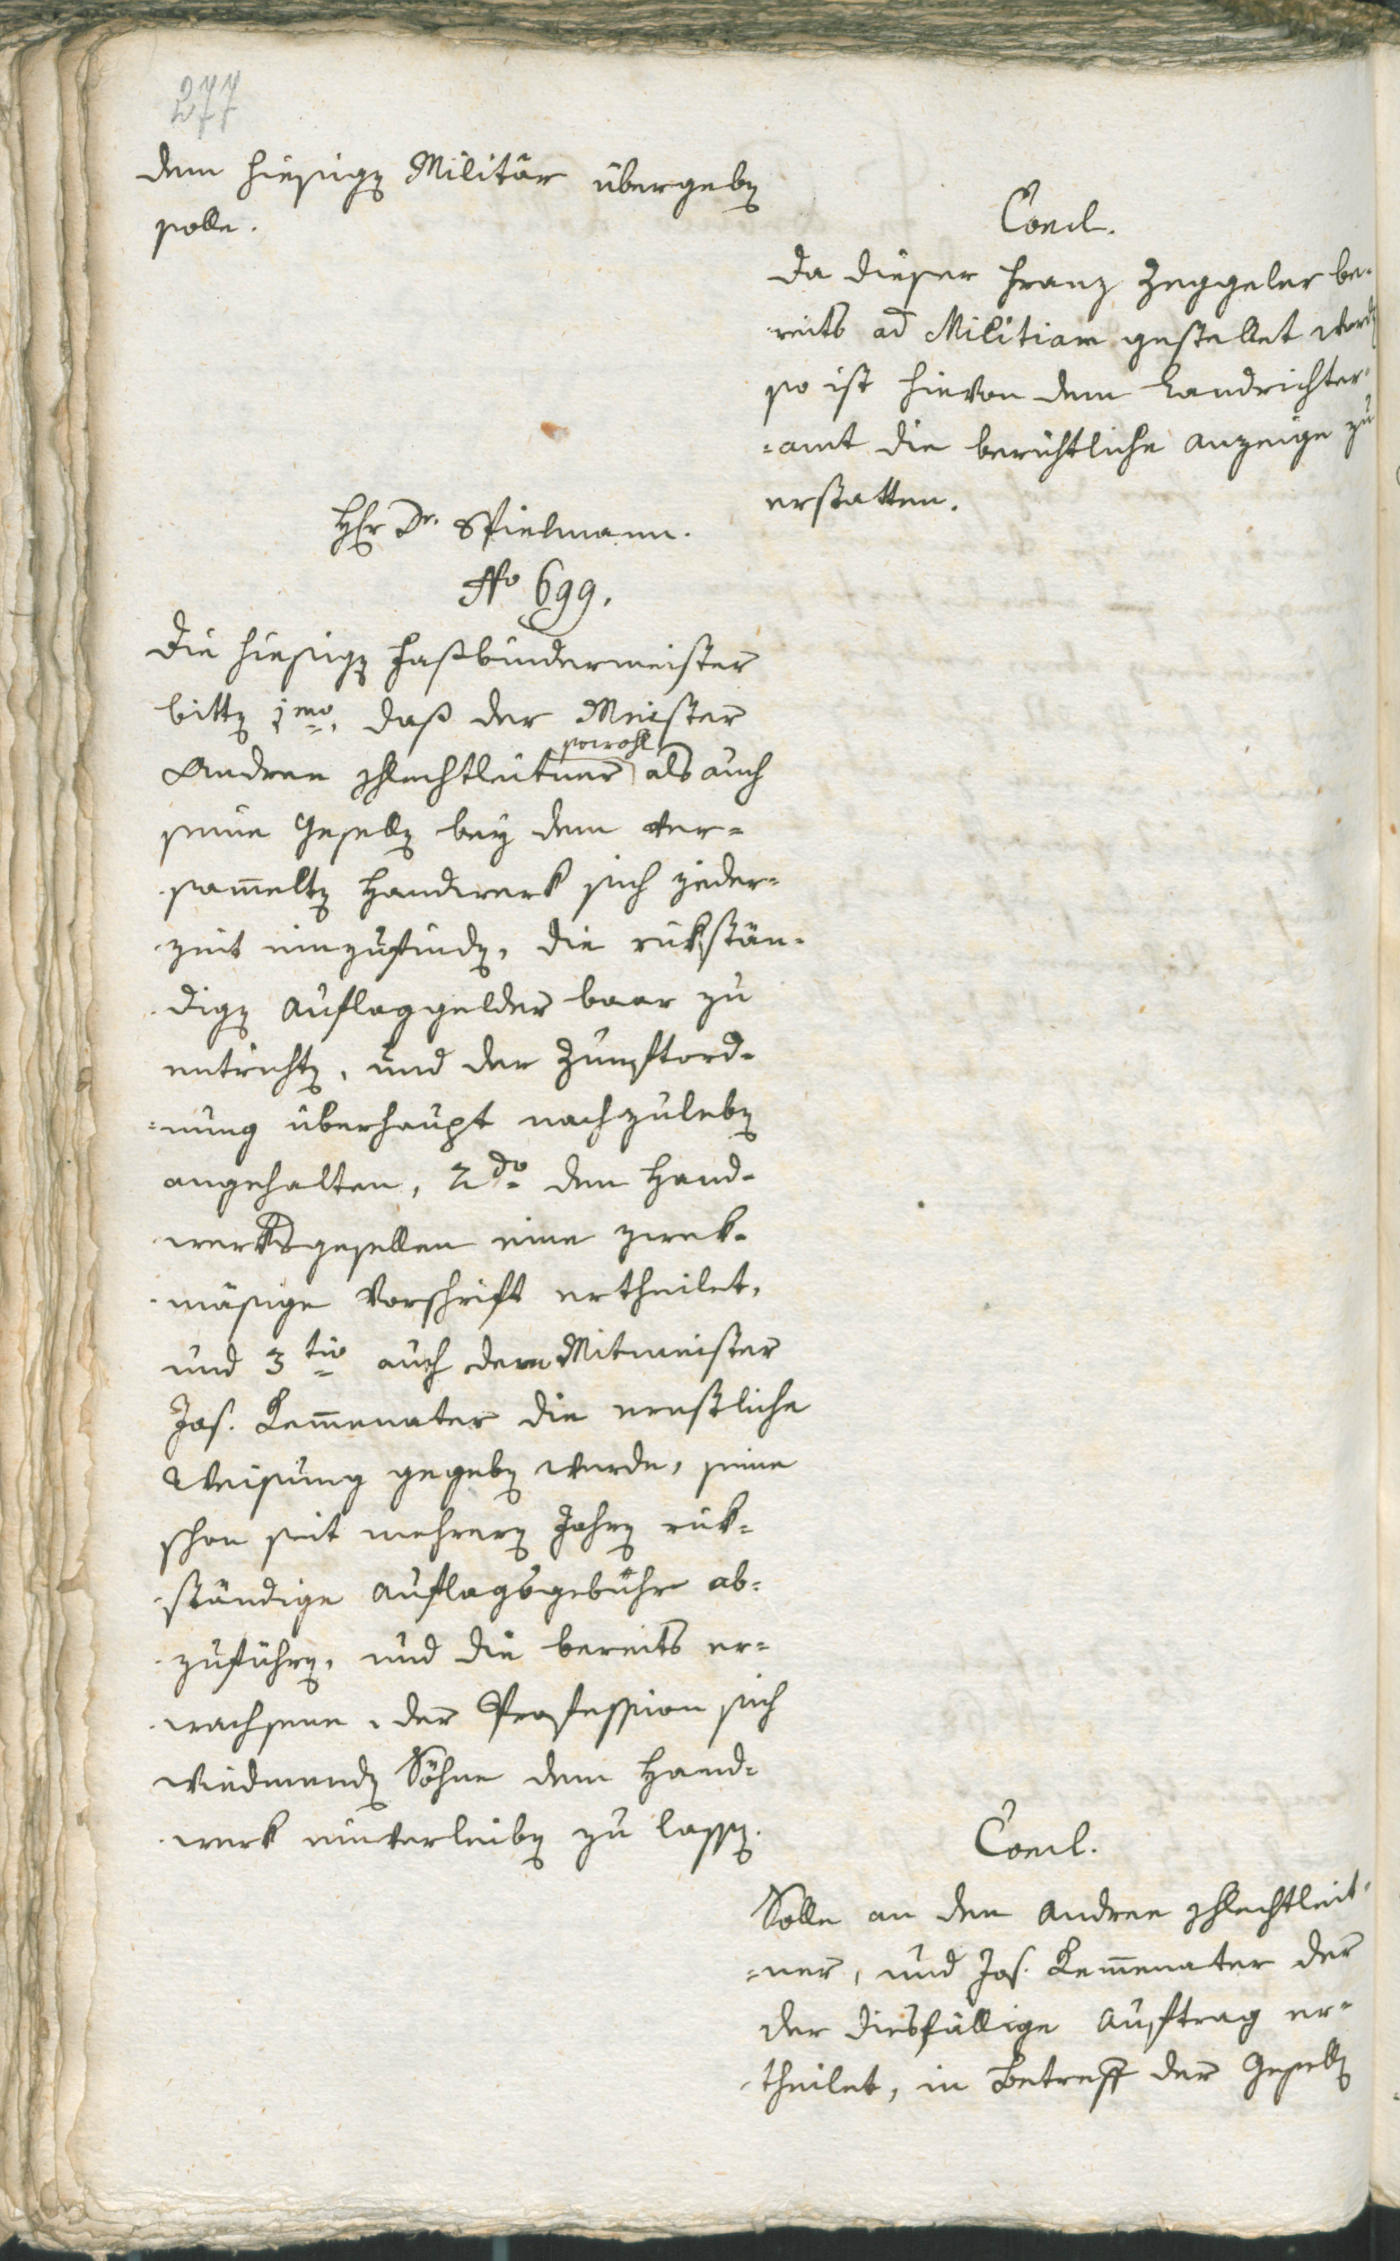 277
dem hiesigen Militär übergeben
solle.
Concl.
Da dieser Franz Zeggeler be-
reits ad Militiam gestellet word
so ist hievon dem Landrichter-
=amt die berichtliche Anzeige zu
erstatten.
Hr Dr. Spielmann.
No 699.
Die hiesigen Faßbindermeister
bitten 1mo. daß der Meister
sowohl
Andree Schlechtleitner als auch
seine Gesellen bey dem ver=
sam̄elten Handwerk sich jeder=
zeit einzufinden, die rükstän=
digen Auflaggelder baar zu
entrichten, und der Zunftord=
=nung überhaupt nachzuleben
angehalten, 2do den Hand=
werksgesellen eine zwek=
mäsige Vorschrift ertheilet,
und 3tio auch dem Mitmeister
Jos. Kem̄enater die ernstliche
Weisung gegeben werde, seine
schon seit mehrern Jahren rük=
ständige Auflagsgebühr ab=
zuführen, und die bereits er=
wachsene, der Profession sich
wiedmenden Söhne dem Hand=
werk einverleiben zu lassen.
Concl.
Solle an den Andree Schlechtleit=
=ner, und Jos. Kem̄enater der
der diesfällige Auftrag er=
theilet, in Betreff der Gesellen